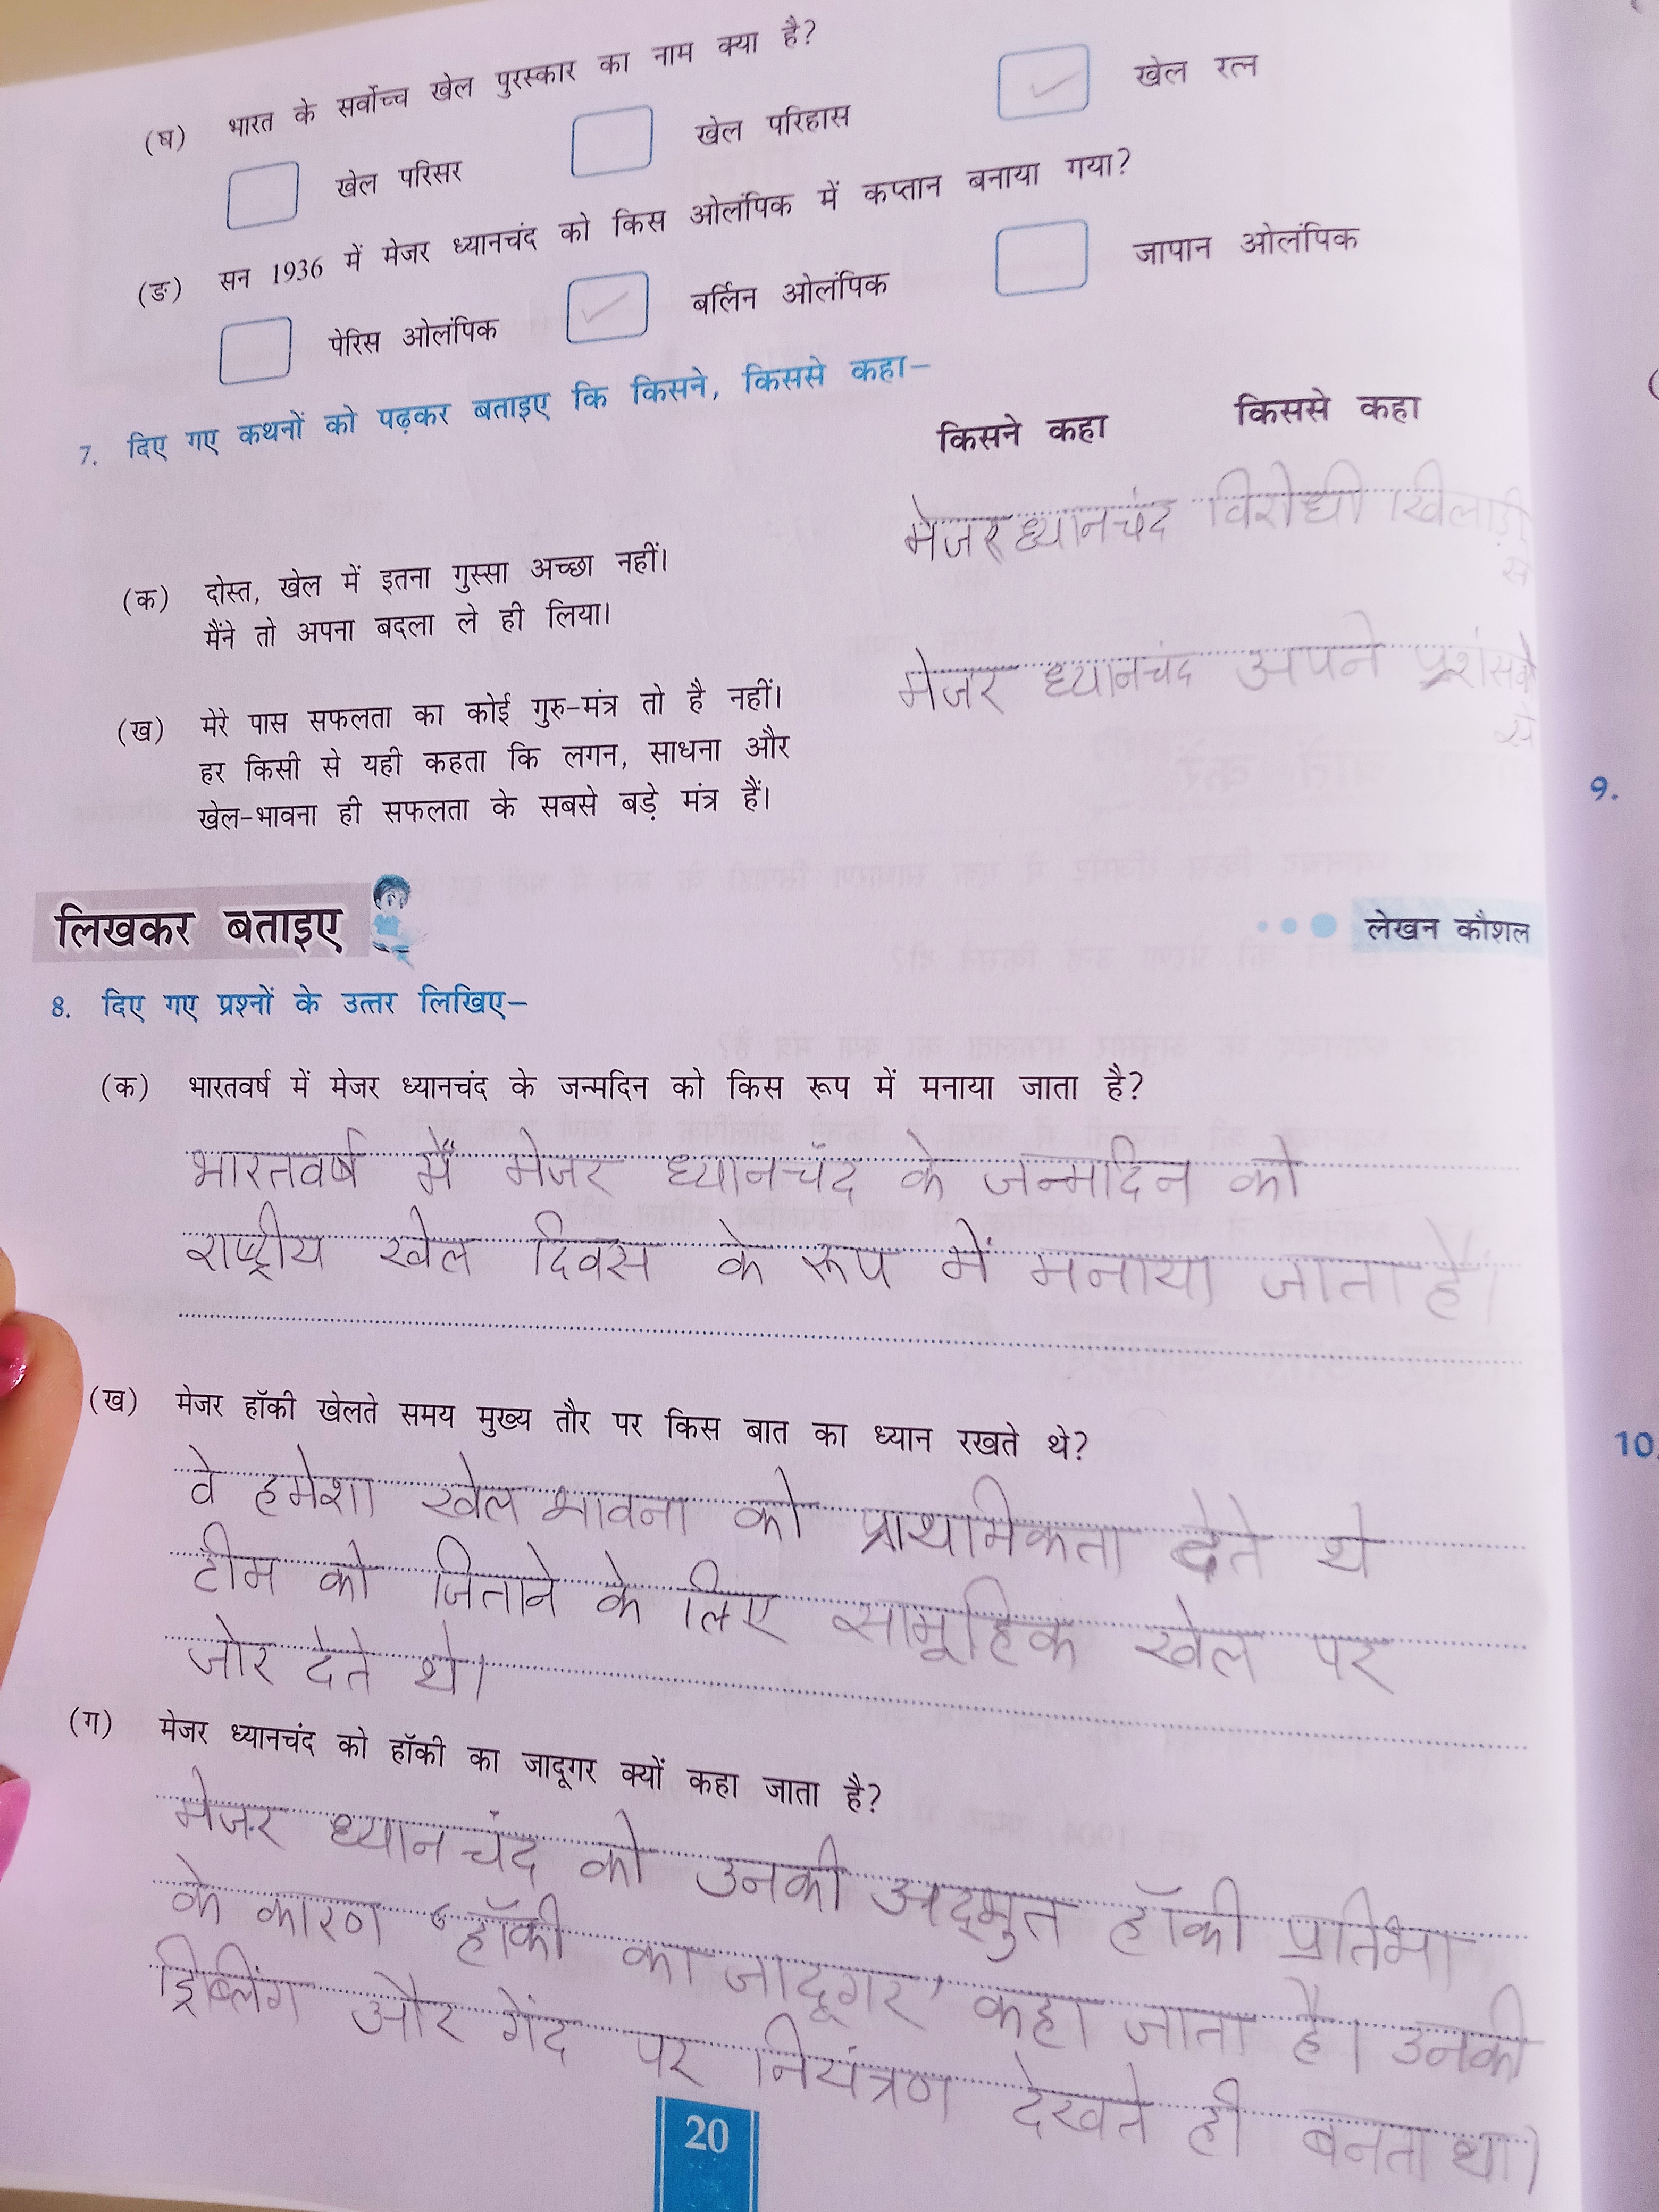 (घ) भारत के सर्वोच्च खेल पुरस्कार का नाम क्या है?
खेल परिसर खेल परिहास खेल रत्न
(ङ) सन 1936 में मेजर ध्यानचंद को किस ओलंपिक में कप्तान बनाया गया?
पेरिस ओलंपिक बर्लिन ओलंपिक जापान ओलंपिक
7. दिए गए कथनों को पढ़कर बताइए कि किसने, किससे कहा–
किसने कहा किससे कहा
मेजर ध्यानचंद विरोधी खिलाड़ी
से
(क) दोस्त, खेल में इतना गुस्सा अच्छा नहीं।
मैंने तो अपना बदला ले ही लिया।
मेजर ध्यानचंद अपने प्रशंसको
से
(ख) मेरे पास सफलता का कोई गुरु-मंत्र तो है नहीं।
हर किसी से यही कहता कि लगन, साधना और
खेल-भावना ही सफलता के सबसे बड़े मंत्र हैं।
लिखकर बताइए
लेखन कौशल
8. दिए गए प्रश्नों के उत्तर लिखिए–
(क) भारतवर्ष में मेजर ध्यानचंद के जन्मदिन को किस रूप में मनाया जाता है?
भारतवर्ष में मेजर ध्यानचंद के जन्मदिन को
राष्ट्रीय खेल दिवस के रूप में मनाया जाता है।
(ख) मेजर हॉकी खेलते समय मुख्य तौर पर किस बात का ध्यान रखते थे?
वे हमेशा खेल भावना को प्राथमिकता देते थे
टीम को जिताने के लिए सामूहिक खेल पर
जोर देते थे।
(ग) मेजर ध्यानचंद को हॉकी का जादूगर क्यों कहा जाता है?
मेजर ध्यानचंद को उनकी अद्भुत हॉकी प्रतिभा
के कारण 'हॉकी का जादूगर' कहा जाता है। उनकी
ड्रिब्लिंग और गेंद पर नियंत्रण देखते ही बनता था।
20
9.
10.